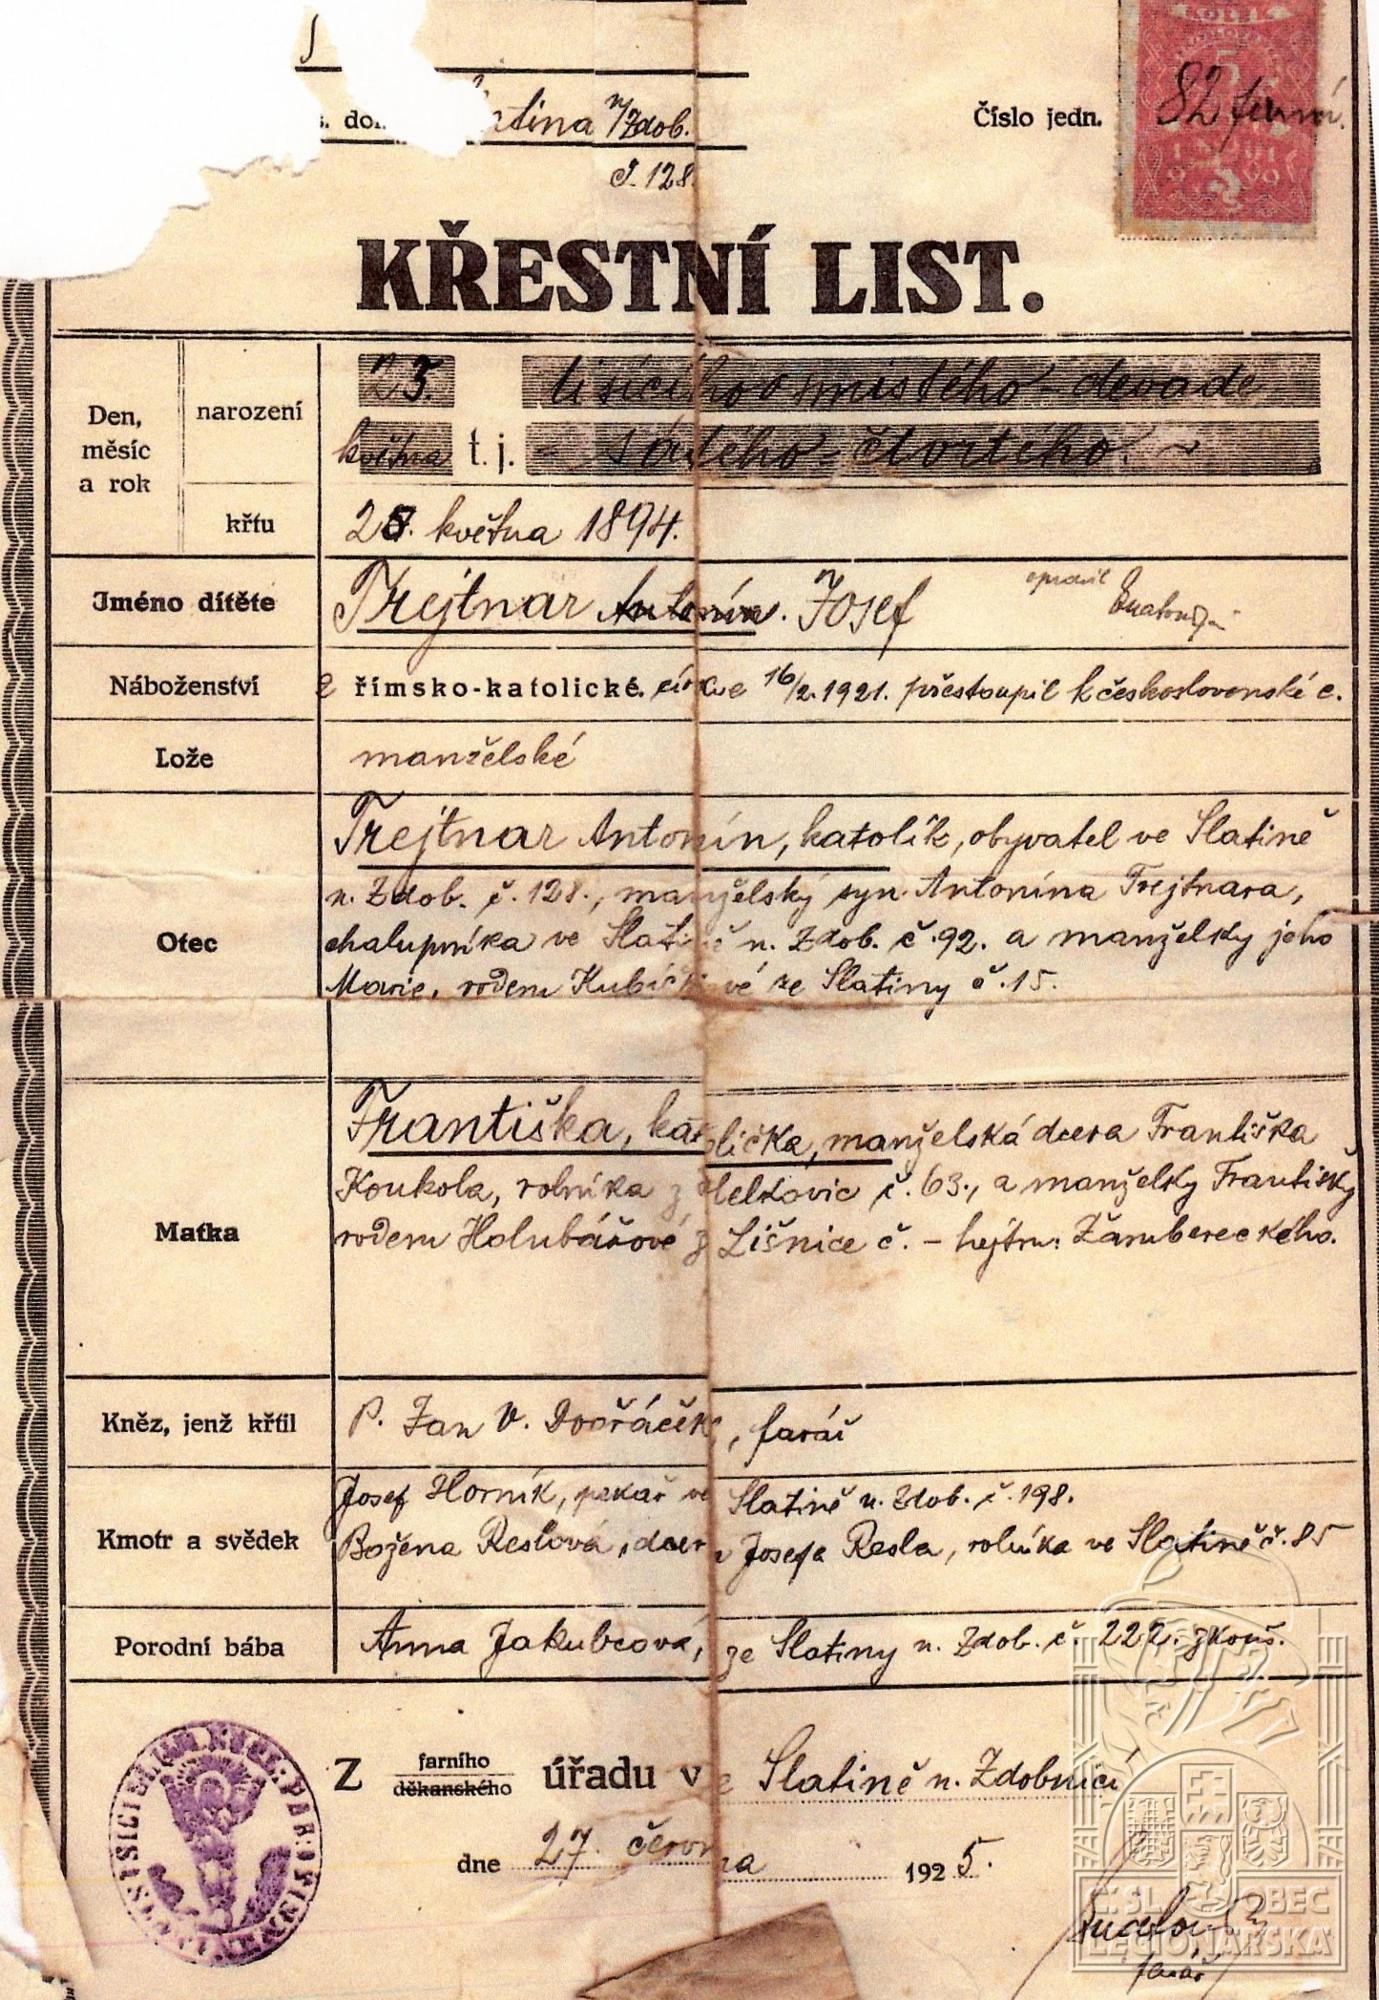 n/Zdob.
č. 128.
Číslo jedn. 82
KŘESTNÍ LIST.
Den, měsíc a rok
narození
23. tisícího osmistého - devade
května t. j. - sátého - čtvrtého. ~
křtu
25. května 1894.
Jméno dítěte
Trejtnar Antonín. Josef opravil
Náboženství
z římsko-katolické. církve 16/2. 1921. přestoupil k československé c.
Lože
manželské
Otec
Trejtnar Antonín, katolík, obyvatel ve Slatině
n. Zdob. č. 128., manželský syn Antonína Trejtnara,
chalupníka ve Slatině n. Zdob. č. 92. a manželky jeho
Marie, rodem Kubíčkové ze Slatiny č. 15.
Matka
Františka, katolička, manželská dcera Františka
Koukola, rolníka z Helkovic č. 63., a manželky Františky
rodem Holubářové z Lišnice č. – hejtm. Žambereckého.
Kněz, jenž křtil
P. Jan V. Dvořáček, farář
Kmotr a svědek
Josef Horník, pekař ve Slatině n. Zdob. č. 198.
Božena Reslová, dcera Josefa Resla, rolníka ve Slatině č. 85
Porodní bába
Anna Jakubcová, ze Slatiny n. Zdob. č. 222. zkouš.
Z farního děkanského úřadu ve Slatině n. Zdobnicí
dne 27. června 1925.
farář
Č. SL. OBEC
LEGIONÁŘSKÁ